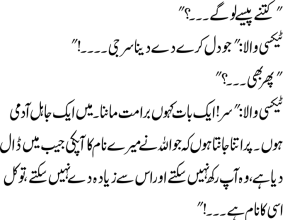 "کتنے پیسے لوگے۔۔۔؟"
ٹیکسی والا:"جو دل کرے دے دینا سر جی۔۔۔۔!"
"پھر بھی۔۔۔؟"
ٹیکسی والا:"سر! ایک بات کہوں برا مت ماننا۔ میں ایک جاہل آدمی
ہوں۔ پر اتنا جانتا ہوں کہ جو اللہ نے میرے نام کا آپکی جیب میں ڈال
دیا ہے، وہ آپ رکھ نہیں سکتے اور اس سے زیادہ دے نہیں سکتے، توکل
اسی کا نام ہے۔۔۔!"